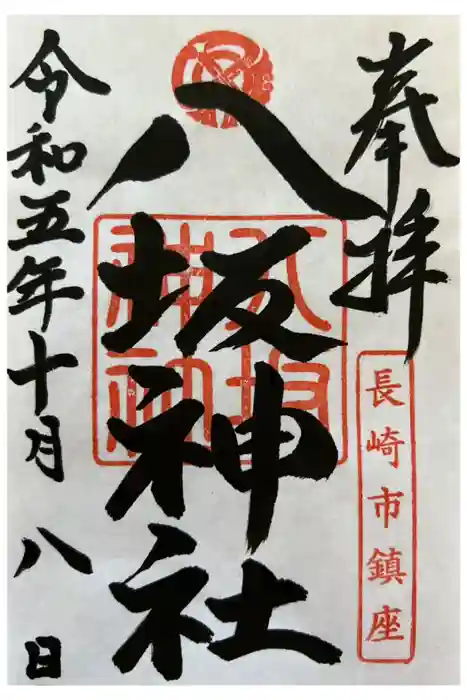 奉拝
長崎市鎮座
八坂神社
八坂神社
令和五年十月八日